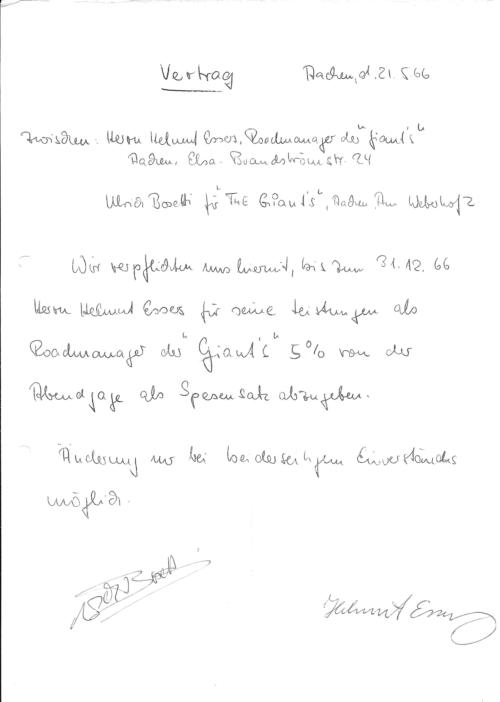 Vertrag
Aachen, d. 21.5 66
zwischen: Herrn Helmut Essers, Roadmanager der "Giant's"
Aachen, Elsa-Brandströmstr. 24
Ulrich Bosetti für "THE Giant's", Aachen, Am Weberhof 2
Wir verpflichten uns hiermit, bis zum 31.12.66
Herrn Helmut Essers für seine Leistungen als
Roadmanager der "Giant's" 5% von der
Abendgage als Spesensatz abzugeben.
Änderung nur bei beiderseitigem Einverständnis
möglich.
Bosetti
Helmut Essers